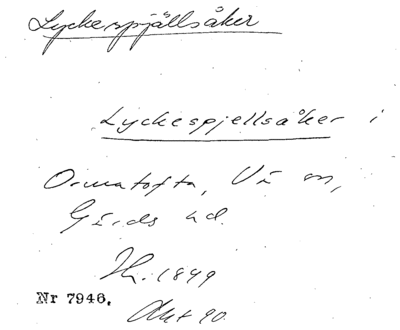 Lyckespjällsåker
Lyckespjellsåker i
Ormatofta, Vä sn,
Gärds hd.
Jh. 1849
Nr 7946.
Akt 90